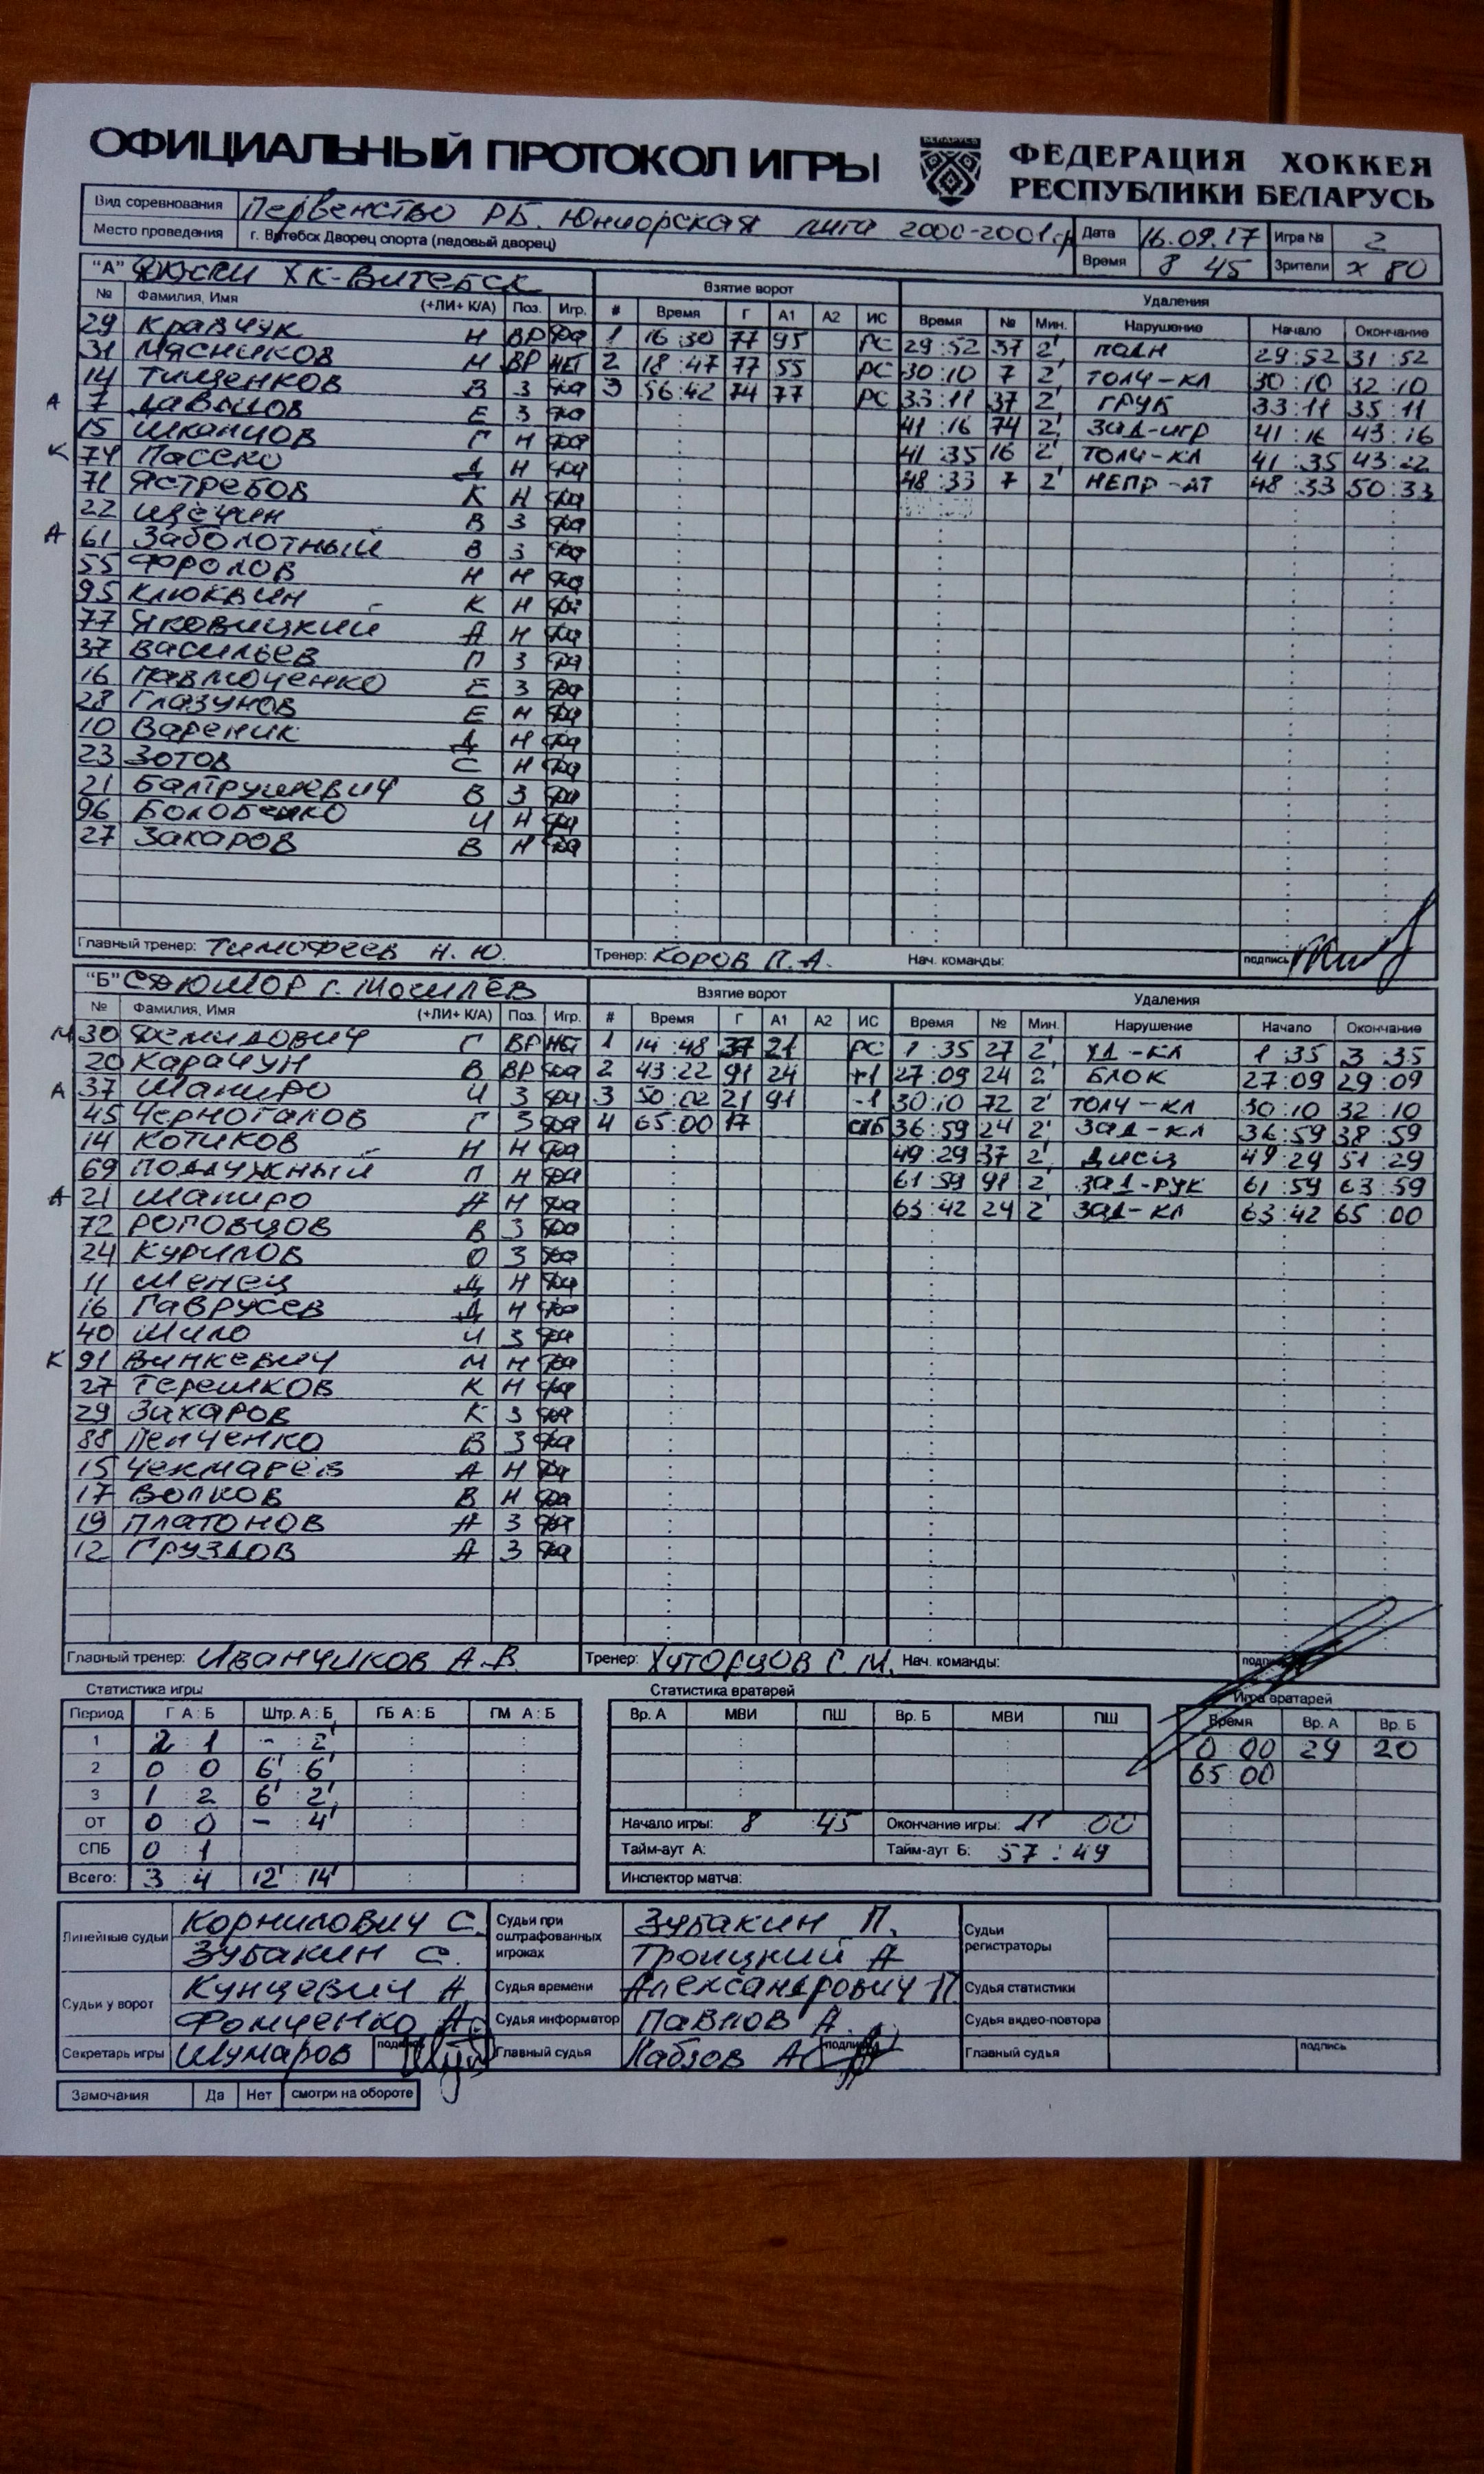 ОФИЦИАЛЬНЫЙ ПРОТОКОЛ ИГРЫ
БЕЛАРУСЬ
ФЕДЕРАЦИЯ ХОККЕЯ
РЕСПУБЛИКИ БЕЛАРУСЬ
Вид соревнования Первенство РБ. Юниорская лига 2000-2001г.р Дата 16.09.17 Игра № 2
Место проведения г. Витебск Дворец спорта (ледовый дворец) Время 8 45 Зрители x 80
"А" ХК-Витебск Взятие ворот Удаления
№ Фамилия, Имя (+ЛИ+ К/А) Поз. Игр. # Время Г А1 А2 ИС Время № Мин. Нарушение Начало Окончание
29 Кравчук Н ВР да 1 16:30 77 95 РС 29:52 37 2' ПОДН 29:52 31:52
31 Мясников М ВР НЕТ 2 18:47 77 55 РС 30:10 7 2' ТОЛЧ-КЛ 30:10 32:10
14 Тищенков В З да 3 56:42 74 77 РС 33:11 37 2' ГРУБ 33:11 35:11
А 7 Давыдов Е З да 41:16 74 2' ЗАД-ИГР 41:16 43:16
15 Шканцов Г Н да 41:35 16 2' ТОЛЧ-КЛ 41:35 43:22
К 74 Пасско Д Н да 48:33 7 2' НЕПР-АТ 48:33 50:33
71 Ястребов К Н да
22 В З да
А 61 Заболотный В З да
55 Фролов Н Н да
95 Клюквин К Н да
77 Яковицкий А Н да
37 Васильев П З да
16 Павлюченко Е З да
28 Глазунов Е Н да
10 Вареник Д Н да
23 Зотов С Н да
21 Балтрушевич В З да
96 Болобенко И Н да
27 Захаров В Н да
Главный тренер: Тимофеев Н.Ю. Тренер: Коров П.А. Нач. команды: подпись
"Б" СДЮШОР г. Могилёв Взятие ворот Удаления
№ Фамилия, Имя (+ЛИ+ К/А) Поз. Игр. # Время Г А1 А2 ИС Время № Мин. Нарушение Начало Окончание
30 Демидович Г ВР НЕТ 1 14:48 37 21 РС 1:35 27 2' УД-КЛ 1:35 3:35
20 Карачун В ВР да 2 43:22 91 24 +1 27:09 24 2' БЛОК 27:09 29:09
А 37 Шапиро И З да 3 50:02 21 91 -1 30:10 72 2' ТОЛЧ-КЛ 30:10 32:10
45 Черноголов Г З да 4 65:00 17 СПБ 36:59 24 2' ЗАД-КЛ 36:59 38:59
14 Котиков Н Н да 49:29 37 2' ДИСЦ 49:29 51:29
69 Поддужный П Н да 61:59 91 2' ЗАД-РУК 61:59 63:59
А 21 Шапиро А Н да 63:42 24 2' ЗАД-КЛ 63:42 65:00
72 Роговцов В З да
24 Курилов О З да
11 Менец Д Н да
16 Гаврусев Д Н да
40 Шило И З да
К 91 Винкевич М Н да
27 Терешков К Н да
29 Захаров К З да
88 Пенченко В З да
15 Чекмарев А Н да
17 Волков В Н да
19 Платонов А З да
12 Груздов А З да
Главный тренер: Иванчиков А.В. Тренер: Хуторцов С.М. Нач. команды:
Статистика игры Статистика вратарей Игра вратарей
Период Г А : Б Штр. А : Б ГБ А : Б ГМ А : Б Вр. А МВИ ПШ Вр. Б МВИ ПШ Время Вр. А Вр. Б
1 2 : 1 - : 2' 0:00 29 20
2 0 : 0 6' : 6' 65:00
3 1 : 2 6' : 2'
ОТ 0 : 0 - : 4' Начало игры: 8 : 45 Окончание игры: 11 : 00
СПБ 0 : 1 Тайм-аут А: Тайм-аут Б: 57 : 49
Всего: 3 : 4 12' : 14' Инспектор матча:
Линейные судьи Корнилович С. Судьи при оштрафованных игроках Зубакин П. Судьи регистраторы
Зубакин С. Троицкий А
Судьи у ворот Кунцевич А Судья времени Александрович П. Судья статистики
Фомченко А. Судья информатор Павлов А. Судья видео-повтора
Секретарь игры Шумаров подпись Главный судья Лабзов А подпись Главный судья подпись
Замечания Да Нет смотри на обороте